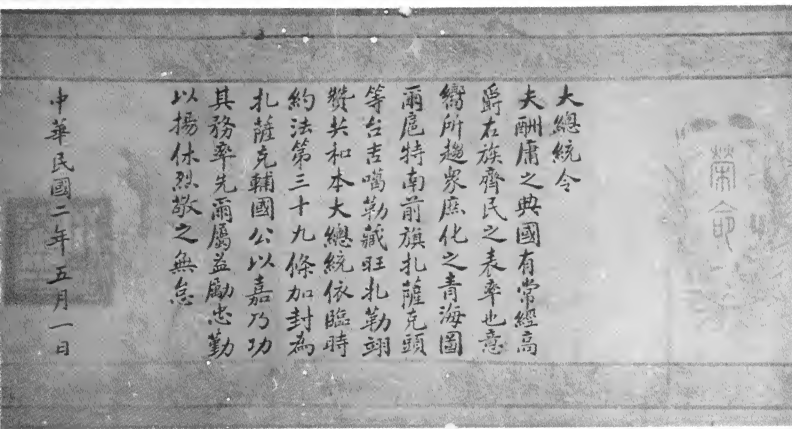 榮命
大總統令
夫酬庸之典國有常經高
爵右族齊民之表率也意
嚮所趨衆庶化之青海圖
爾扈特南前旗扎薩克頭
等台吉噶勒藏旺扎勒翊
贊共和本大總統依臨時
約法第三十九條加封為
扎薩克輔國公以嘉乃功
其務率先爾屬益勵忠勤
以揚休烈敬之無怠
中華民國二年五月一日